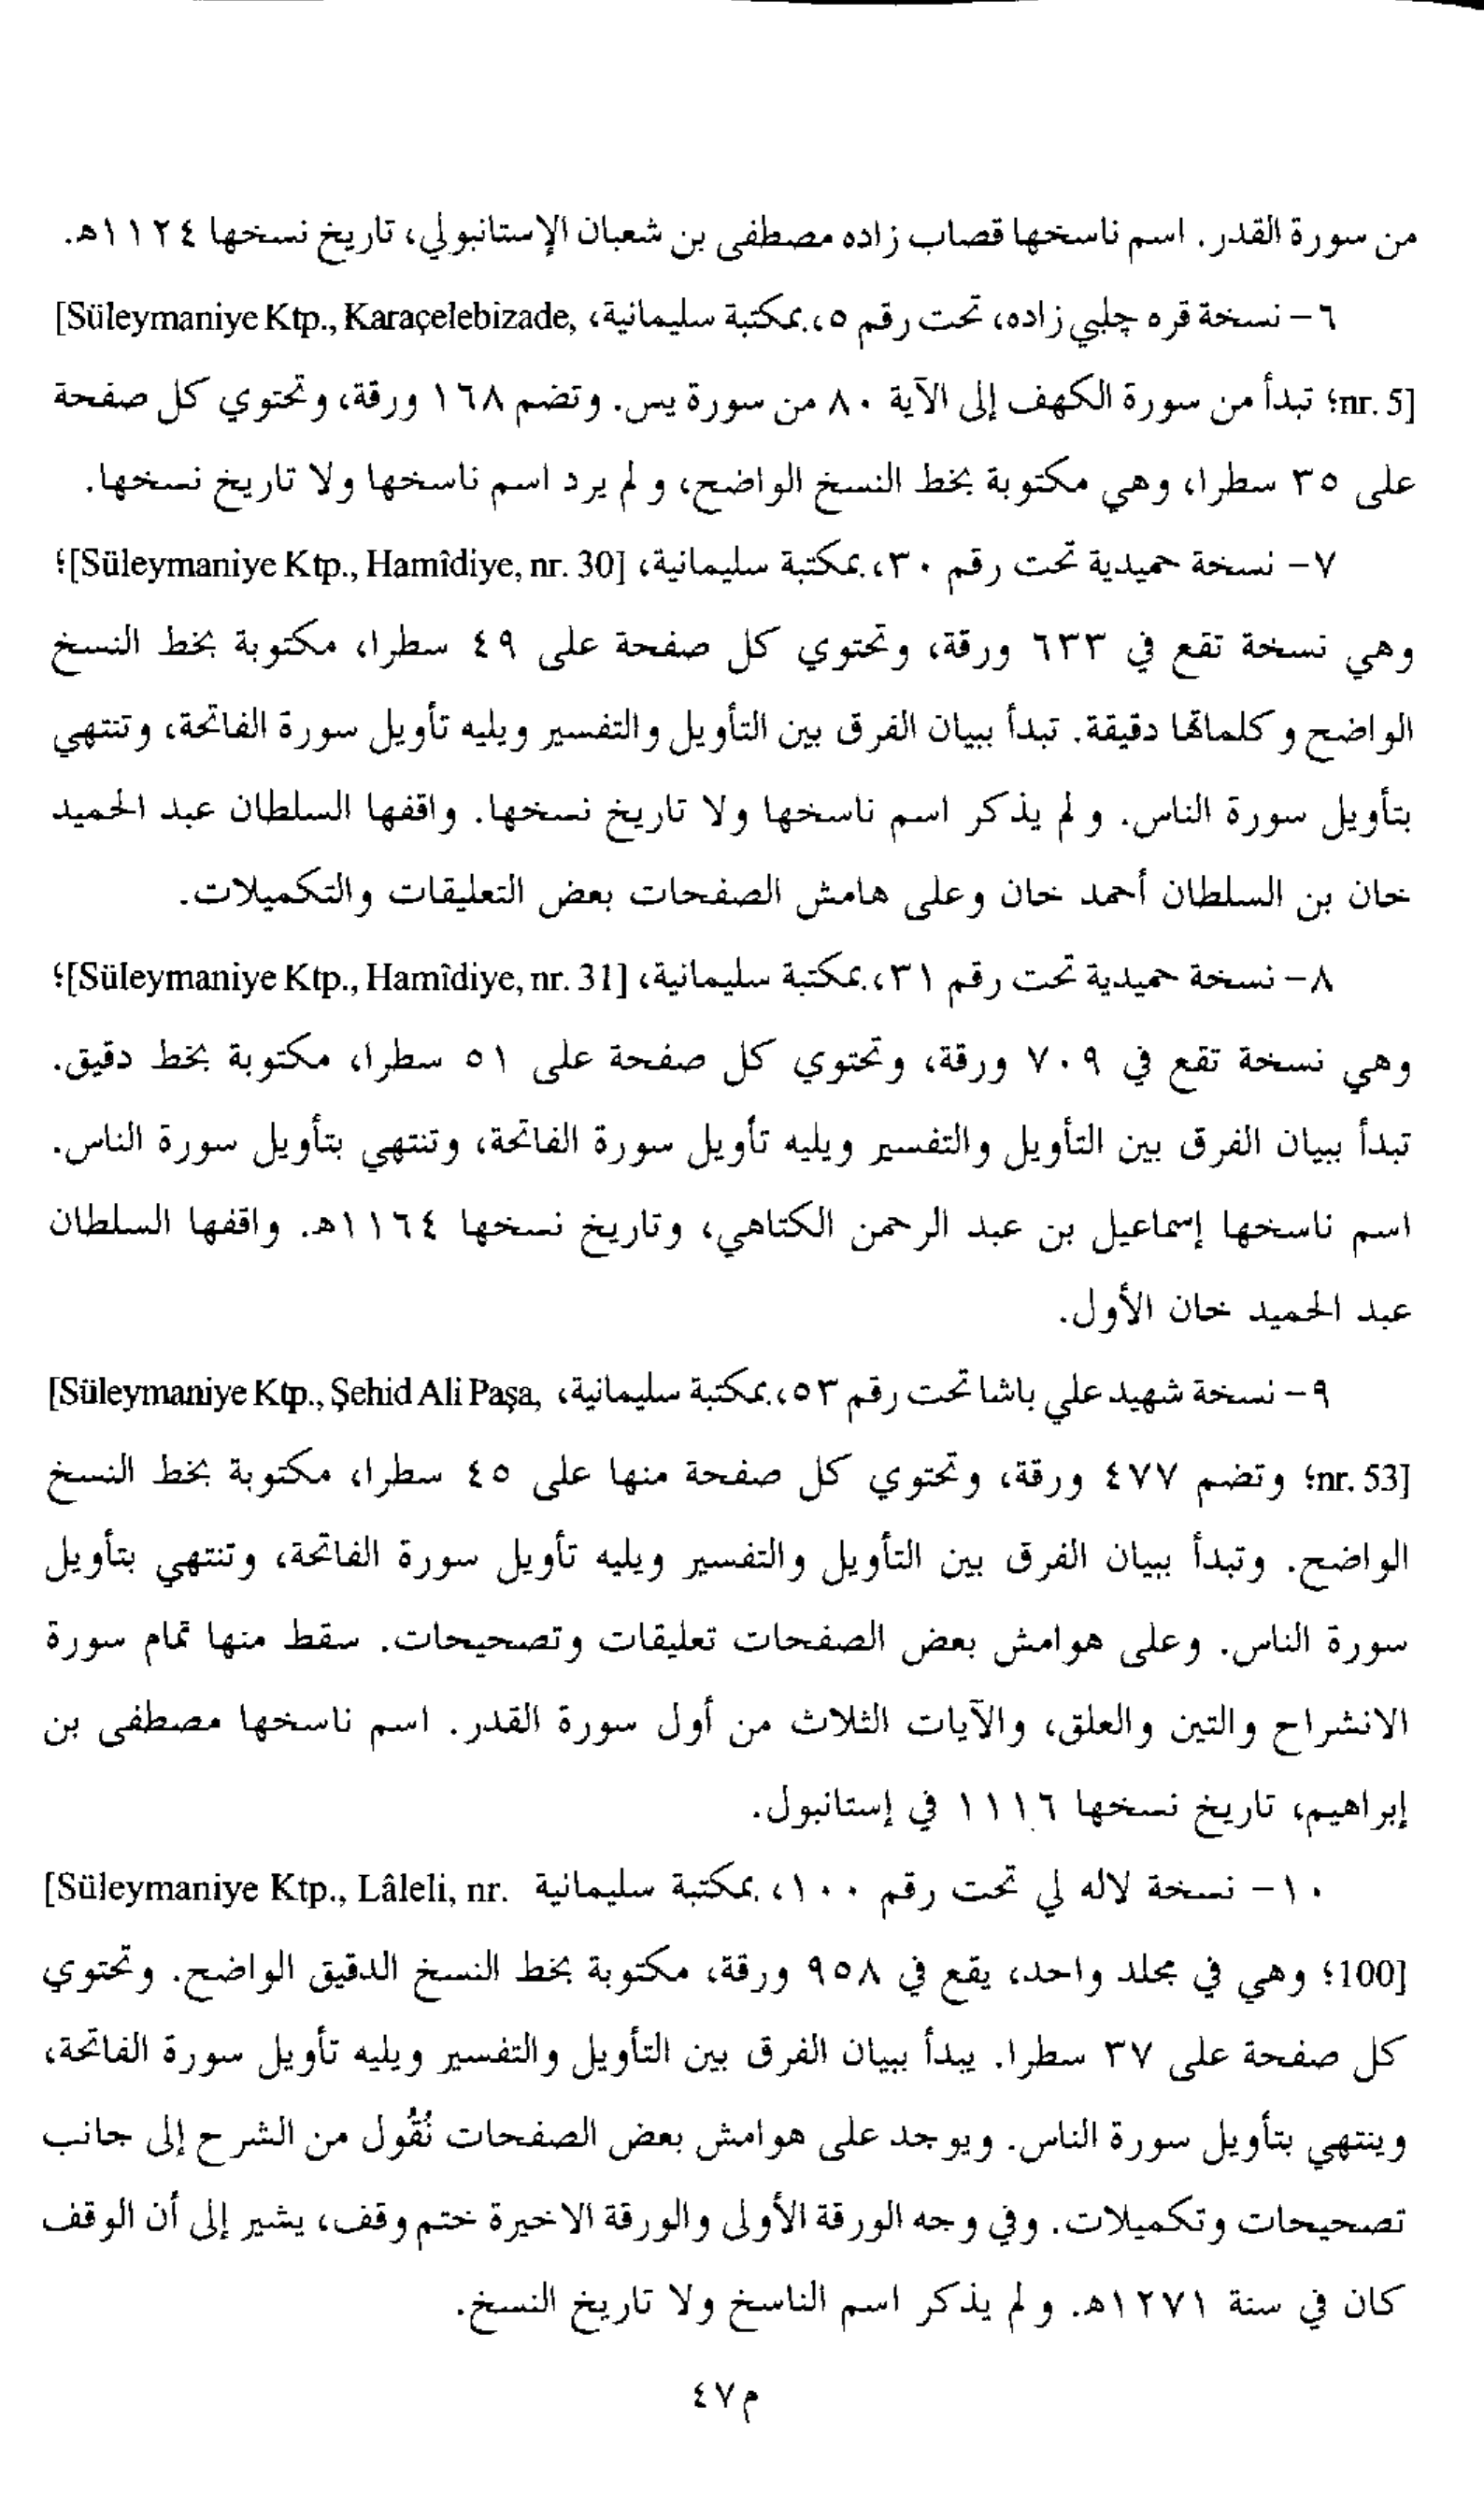 من سورة القدر. اسم ناسخها قصاب زاده مصطفى بن شعبان الإستانبولي، تاريخ نسخها ١١٢٤هـ.
٦- نسخة قره چلبي زاده، تحت رقم ٥، بمكتبة سليمانية، [Süleymaniye Ktp., Karaçelebizade,
nr. 5]؛ تبدأ من سورة الكهف إلى الآية ٨٠ من سورة يس. وتضم ١٦٨ ورقة، وتحتوي كل صفحة
على ٣٥ سطرا، وهي مكتوبة بخط النسخ الواضح، و لم يرد اسم ناسخها ولا تاريخ نسخها.
٧- نسخة حميدية تحت رقم ٣٠، بمكتبة سليمانية، [Süleymaniye Ktp., Hamîdiye, nr. 30]؛
وهي نسخة تقع في ٦٣٣ ورقة، وتحتوي كل صفحة على ٤٩ سطرا، مكتوبة بخط النسخ
الواضح وكلماتها دقيقة. تبدأ ببيان الفرق بين التأويل والتفسير ويليه تأويل سورة الفاتحة، وتنتهي
بتأويل سورة الناس. و لم يذكر اسم ناسخها ولا تاريخ نسخها. واقفها السلطان عبد الحميد
خان بن السلطان أحمد خان وعلى هامش الصفحات بعض التعليقات والتكميلات.
٨- نسخة حميدية تحت رقم ٣١، بمكتبة سليمانية، [Süleymaniye Ktp., Hamîdiye, nr. 31]؛
وهي نسخة تقع في ٧٠٩ ورقة، وتحتوي كل صفحة على ٥١ سطرا، مكتوبة بخط دقيق.
تبدأ ببيان الفرق بين التأويل والتفسير ويليه تأويل سورة الفاتحة، وتنتهي بتأويل سورة الناس.
اسم ناسخها إسماعيل بن عبد الرحمن الكتاهي، وتاريخ نسخها ١١٦٤هـ. واقفها السلطان
عبد الحميد خان الأول.
٩- نسخة شهيد علي باشا تحت رقم ٥٣، بمكتبة سليمانية، [Süleymaniye Ktp., Şehid Ali Paşa,
nr. 53]؛ وتضم ٤٧٧ ورقة، وتحتوي كل صفحة منها على ٤٥ سطرا، مكتوبة بخط النسخ
الواضح. وتبدأ ببيان الفرق بين التأويل والتفسير ويليه تأويل سورة الفاتحة، وتنتهي بتأويل
سورة الناس. وعلى هوامش بعض الصفحات تعليقات وتصحيحات. سقط منها تمام سورة
الانشراح والتين والعلق، والآيات الثلاث من أول سورة القدر. اسم ناسخها مصطفى بن
إبراهيم، تاريخ نسخها ١١١٦ في إستانبول.
١٠- نسخة لاله لي تحت رقم ١٠٠، بمكتبة سليمانية [Süleymaniye Ktp., Lâleli, nr.
100]؛ وهي في مجلد واحد، يقع في ٩٥٨ ورقة، مكتوبة بخط النسخ الدقيق الواضح. وتحتوي
كل صفحة على ٣٧ سطرا. يبدأ ببيان الفرق بين التأويل والتفسير ويليه تأويل سورة الفاتحة،
وينتهي بتأويل سورة الناس. ويوجد على هوامش بعض الصفحات نُقُول من الشرح إلى جانب
تصحيحات وتكميلات. وفي وجه الورقة الأولى والورقة الاخيرة ختم وقف، يشير إلى أن الوقف
كان في سنة ١٢٧١هـ. و لم يذكر اسم الناسخ ولا تاريخ النسخ.
م٤٧